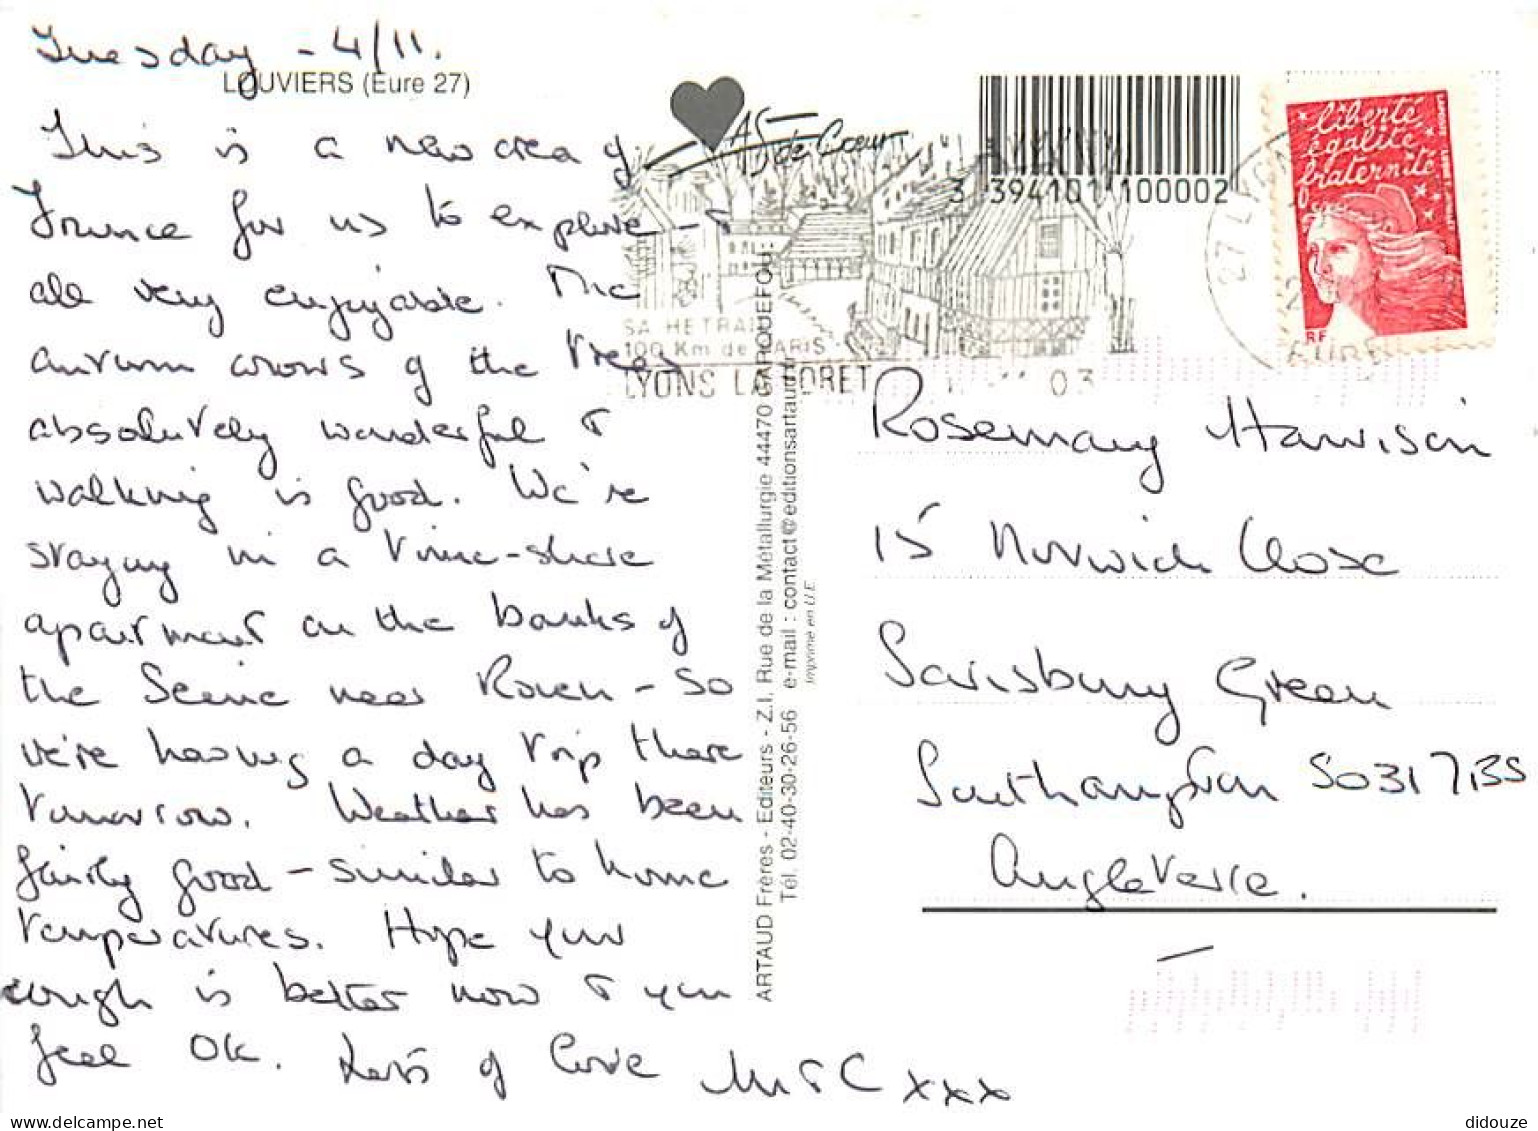 Tuesday - 4/11.
LOUVIERS (Eure 27)
This is a new area of
France for us to explore - &
all very enjoyable. The
autumn colours of the trees
absolutely wonderful &
walking is good. We're
staying in a time-share
apartment on the banks of
the Seine near Rouen - so
we're having a day trip there
tomorrow. Weather has been
fairly good - similar to home
temperatures. Hope your
cough is better now & you
feel OK. Lots of love M & C xxx
AS de Cœur
SA HETRAIE
100 Km de PARIS
LYONS LA FORET
03
3 394101 100002
27 LYONS
EURE
liberté
égalité
fraternité
RF
ARTAUD Frères - Editeurs - Z.I. Rue de la Métallurgie 44470 CARQUEFOU
Tél. 02-40-30-26-56 e-mail : contact@editionsartaud.fr
Imprimé en U.E.
Rosemary Harrison
15 Norwich Close
Sarisbury Green
Southampton SO31 7BS
Angleterre.
didouze